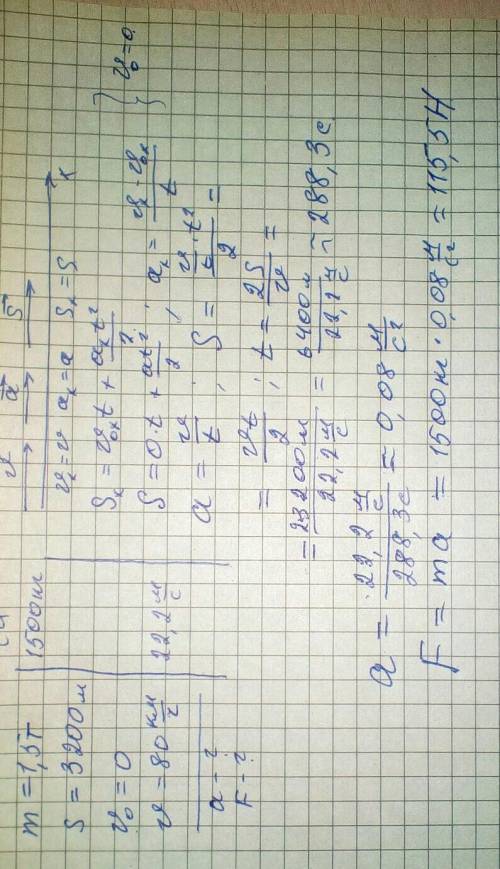 m = 1,5т | 1500кг
S = 3200м
v₀ = 0
v = 80 км/г | 22,2 м/с
a - ?
F - ?
v→ a→ S→
x
vₓ = v aₓ = a Sₓ = S
Sₓ = v₀ₓt + aₓt²/2
S = 0·t + at²/2 ; aₓ = (vₓ - v₀ₓ)/t } v₀ = 0.
a = v/t ; S = (v/t · t²)/2 =
= vt/2 ; t = 2S/v =
= 2·3200м / 22,2 м/с = 6400м / 22,2 м/с ≈ 288,3с
a = 22,2 м/с / 288,3с = 0,08 м/с²
F = ma = 1500кг · 0,08 м/с² = 115,5Н